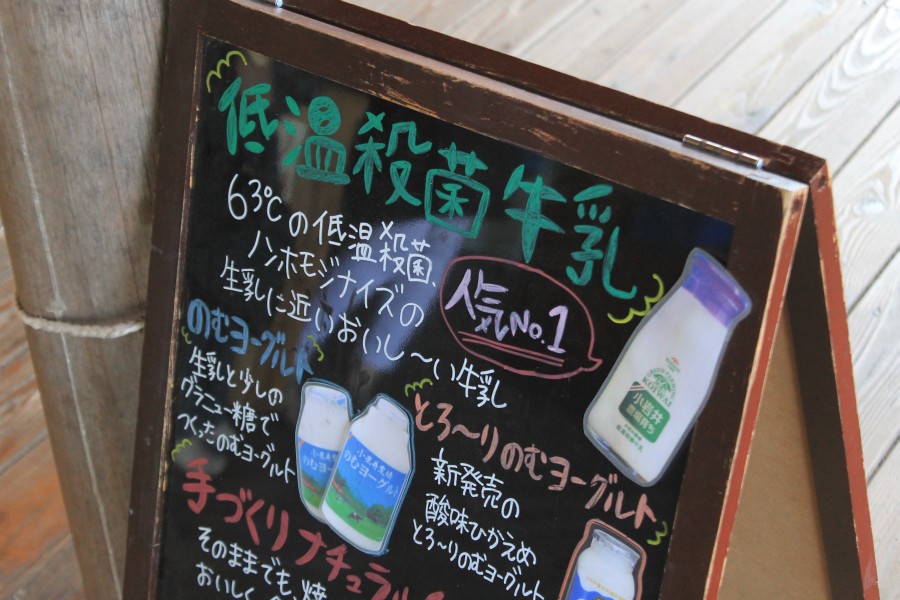 低温殺菌牛乳
63℃の低温殺菌、
ノンホモジナイズの
生乳に近いおいし〜い牛乳
人気No.1
KOIWAI
小岩井
農場育ち
のむヨーグルト
生乳と少しの
グラニュー糖で
つくったのむヨーグルト
のむヨーグルト
とろ〜りのむヨーグルト
新発売の
酸味ひかえめ
とろ〜りのむヨーグルト
手づくりナチュラル
そのままでも焼
おいしく